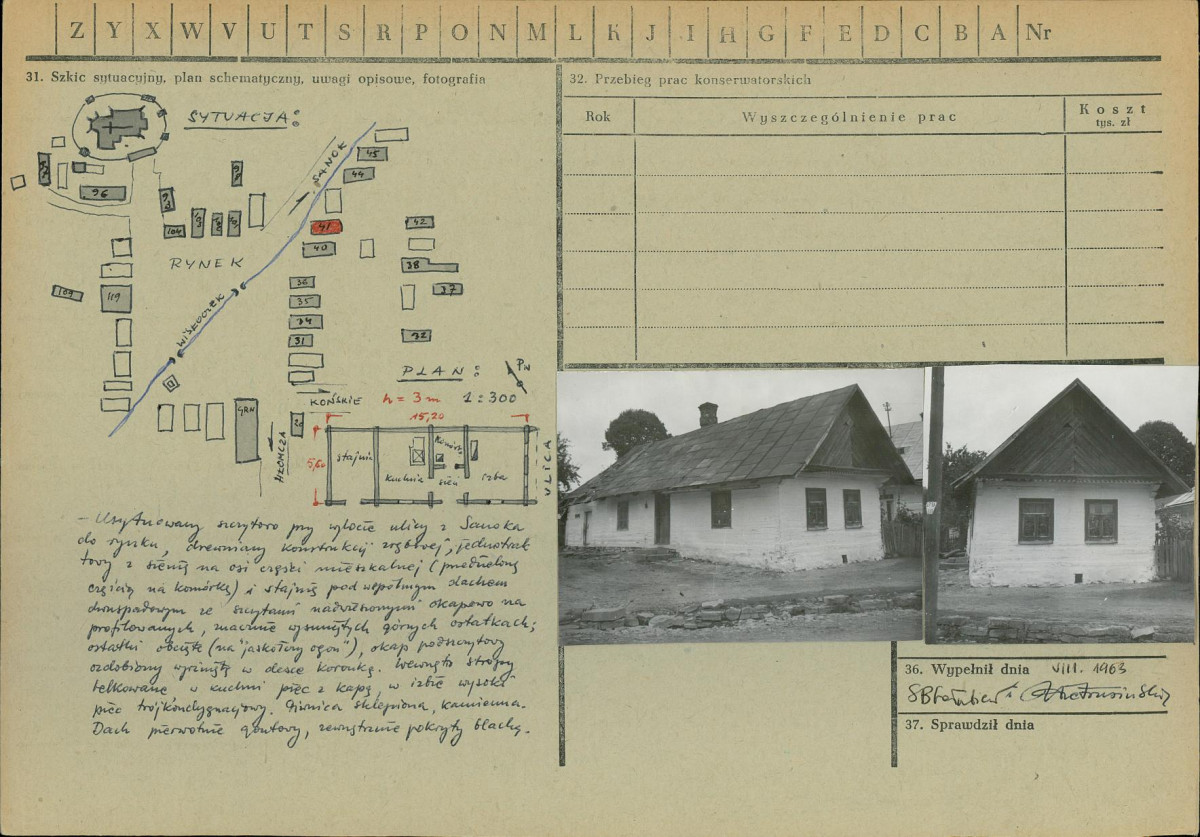 Z Y X W V U T S R P O N M L K J I H G F E D C B A Nr
31. Szkic sytuacyjny, plan schematyczny, uwagi opisowe, fotografia
SYTUACJA:
SANOK
45
44
96
104
41
40
42
38
37
RYNEK
119
36
35
34
31
32
WISŁOCZEK
PLAN:
PN
KOŃSKIE
h = 3 m 1:300
15,20
GRN
HŁOMCZA
5,60
stajnia
kuchnia
Komórka
sień
izba
ULICA
– Usytuowany szczytowo przy wylocie ulicy z Sanoka
do rynku, drewniany konstrukcji zrębowej, jednotrak
towy z sienią na osi części mieszkalnej (przedzieloną
częścią na komórkę) i stajnią pod wspólnym dachem
dwuspadowym ze szczytami nadwieszonymi okapowo na
profilowanych, znacznie wysuniętych górnych ostatkach;
ostatki obcięte (na "jaskółczy ogon"), okap podszczytowy
ozdobiony wyrżniętą w desce koronką. Wewnątrz stropy
belkowane, w kuchni piec z kapą, w izbie wysoki
piec trójkondygnacjowy. Piwnica sklepiona, kamienna.
Dach pierwotnie gontowy, zewnętrznie pokryty blachą.
32. Przebieg prac konserwatorskich
Rok
Wyszczególnienie prac
Koszt
tys. zł
36. Wypełnił dnia VIII. 1963
37. Sprawdził dnia